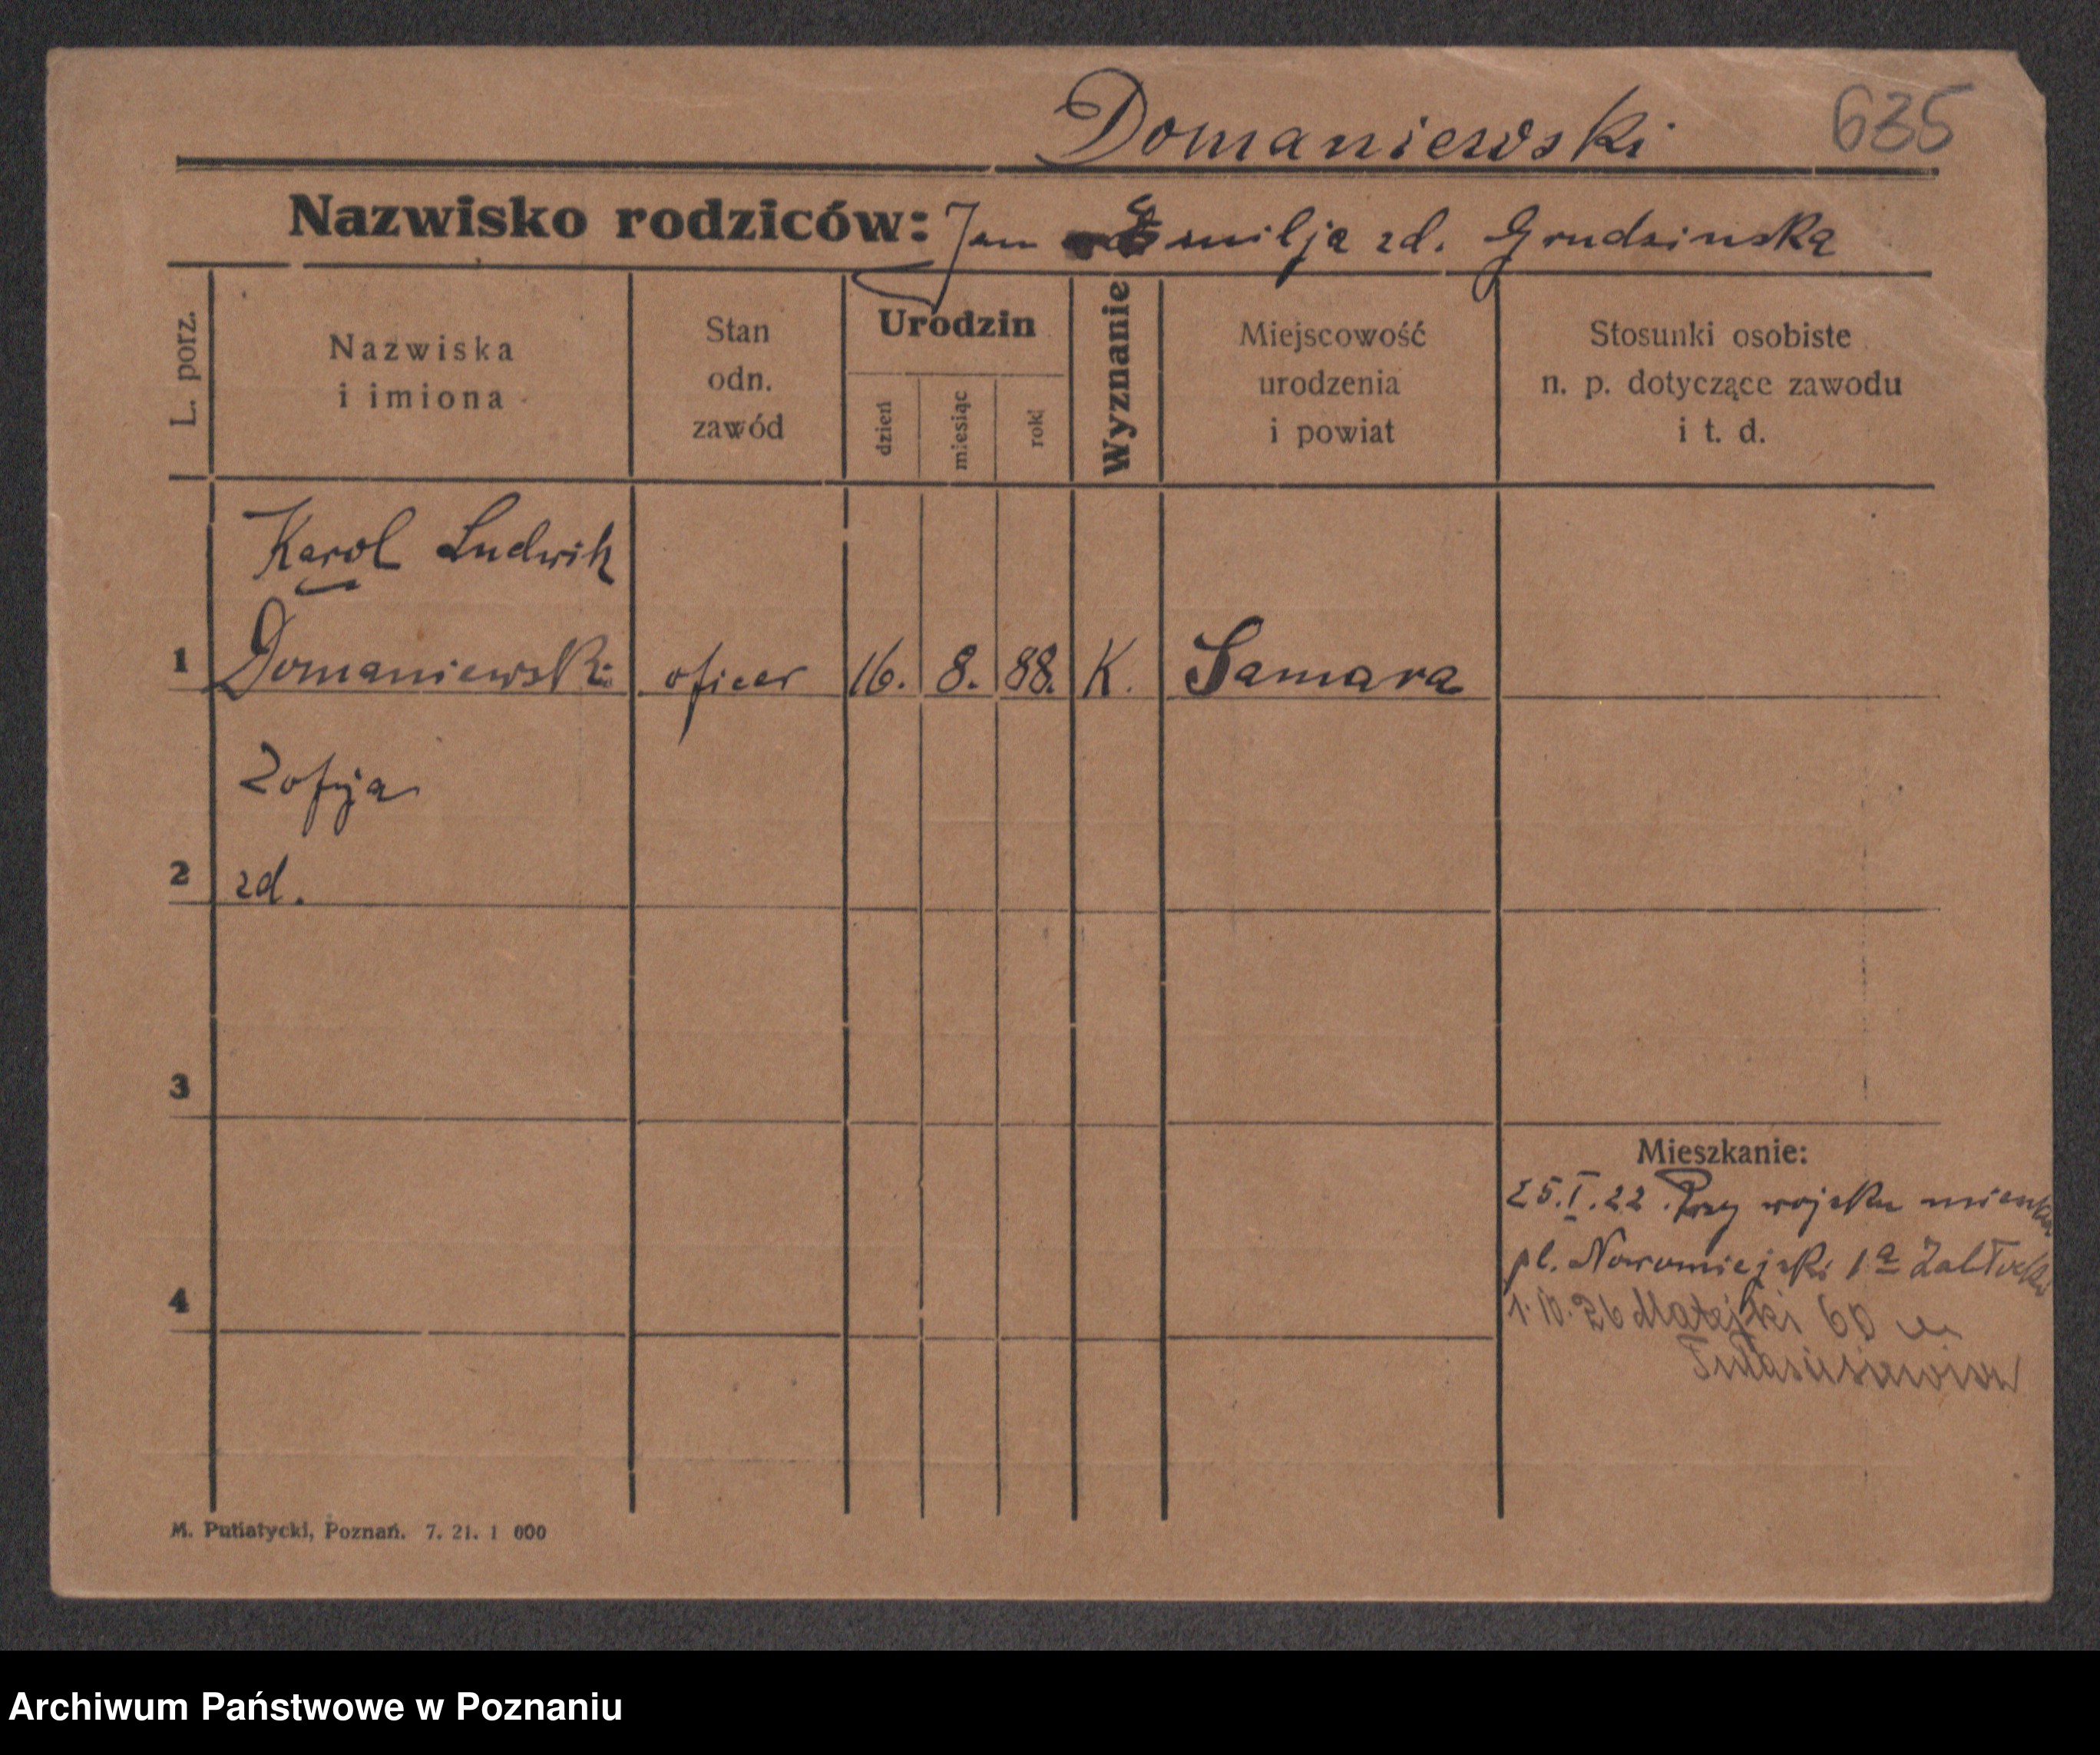 Domaniewski 635
Nazwisko rodziców: Jan Emilja zd. Grudzinska
L. porz.
Nazwiska
i imiona
Stan
odn.
zawód
Urodzin
dzień
miesiąc
rok
Wyznanie
Miejscowość
urodzenia
i powiat
Stosunki osobiste
n. p. dotyczące zawodu
i t. d.
Karol Ludwik
1 Domaniewski oficer 16. 8. 88. K. Samara
Zofja
2 zd.
3
Mieszkanie:
25.I.22. Przy wojsku
pl. Nowomiejski 1a
4
1. 26 Matejki 60
M. Putiatycki, Poznań. 7. 21. 1 000
Archiwum Państwowe w Poznaniu